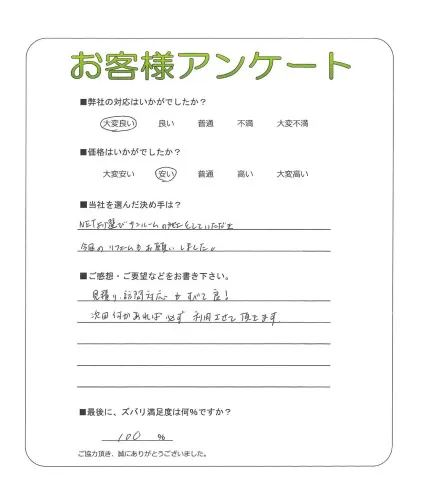 お客様アンケート
■弊社の対応はいかがでしたか？
大変良い 良い 普通 不満 大変不満
■価格はいかがでしたか？
大変安い 安い 普通 高い 大変高い
■当社を選んだ決め手は？
NETで選びサンルームの をしていただき
今回のリフォームもお願いしました。
■ご感想・ご要望などをお書き下さい。
見積り、訪問対応 すべて良！
次回何かあれば必ず利用させて頂きます。
■最後に、ズバリ満足度は何％ですか？
100 ％
ご協力頂き、誠にありがとうございました。